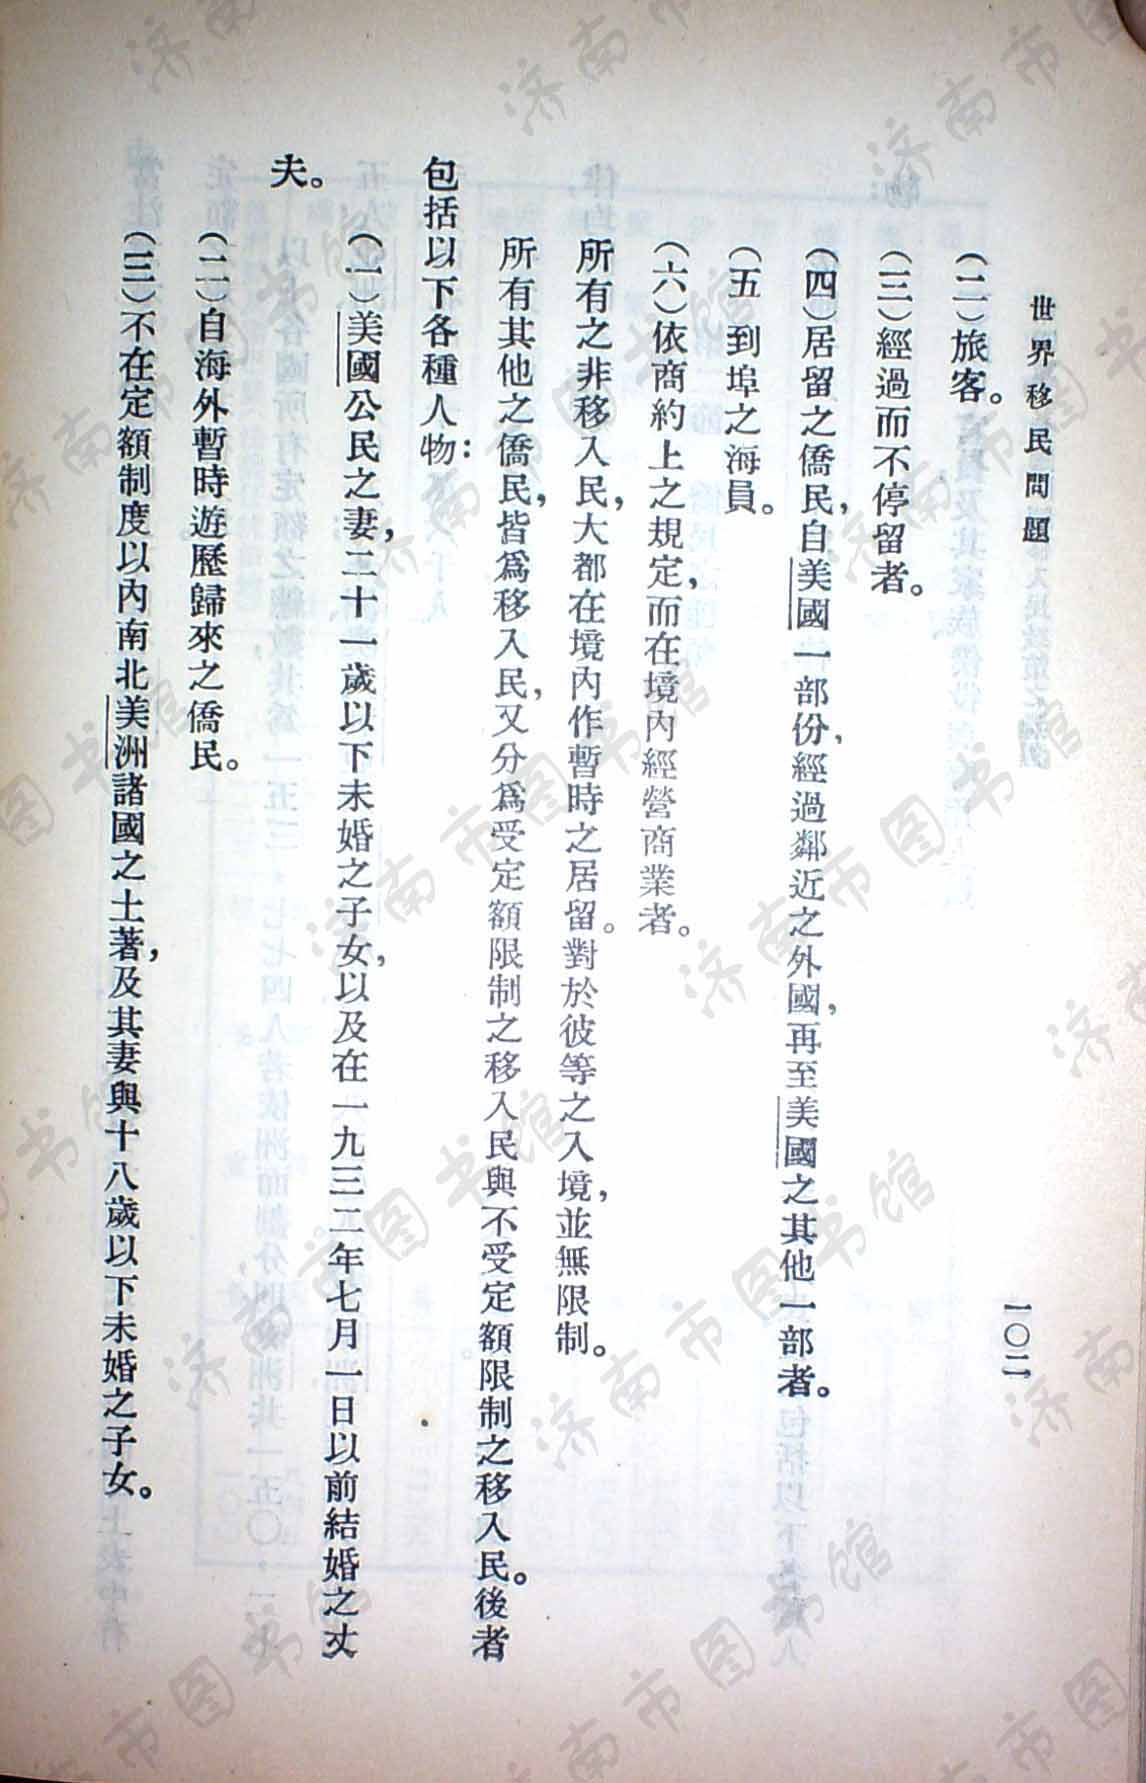 世界移民問題
一〇二
(二)旅客。
(三)經過而不停留者。
(四)居留之僑民，自美國一部份，經過鄰近之外國，再至美國之其他一部者。
(五 到埠之海員。
(六)依商約上之規定，而在境內經營商業者。
所有之非移入民，大都在境內作暫時之居留。對於彼等之入境，並無限制。
所有其他之僑民，皆爲移入民，又分爲受定額限制之移入民與不受定額限制之移入民。後者
包括以下各種人物：
(一)美國公民之妻，二十一歲以下未婚之子女，以及在一九三二年七月一日以前結婚之丈
夫。
(二)自海外暫時遊歷歸來之僑民。
(三)不在定額制度以內南北美洲諸國之土著，及其妻與十八歲以下未婚之子女。
济南市图书馆